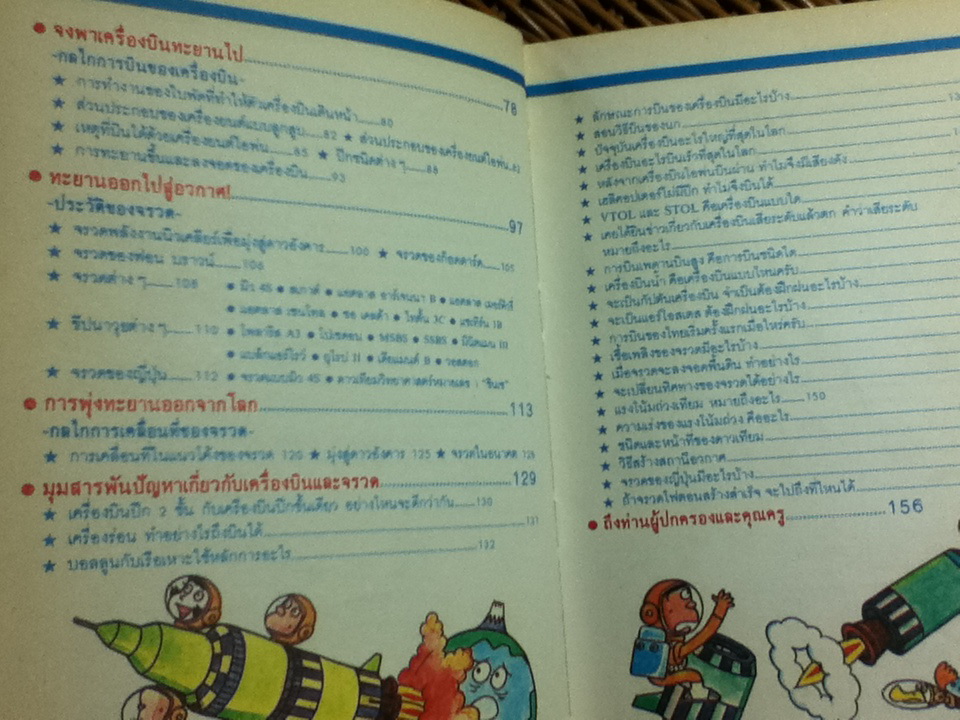 ● จงพาเครื่องบินทะยานไป 78
-กลไกการบินของเครื่องบิน-
★ การทำงานของใบพัดที่ทำให้ตัวเครื่องบินเดินหน้า 80
★ ส่วนประกอบของเครื่องยนต์แบบลูกสูบ 82 ★ ส่วนประกอบของเครื่องยนต์ไอพ่น
★ เหตุที่บินได้ด้วยเครื่องยนต์ไอพ่น 85 ★ ปีกชนิดต่าง ๆ 88
★ การทะยานขึ้นและลงจอดของเครื่องบิน 93
● ทะยานออกไปสู่อวกาศ! 97
-ประวัติของจรวด-
★ จรวดพลังงานนิวเคลียร์เพื่อมุ่งสู่ดาวอังคาร 100 ★ จรวดของก็อดดาร์ด 105
★ จรวดของฟอน บราวน์ 106
★ จรวดต่าง ๆ 108 ● มิว 4S ● สเกาต์ ● แอตลาส อาร์เจนนา B ● แอตลาส เมอร์คิวรี่
● แอตลาส เซนทอล ● ซอ เดลต้า ● ไททั้น 3C ● แซทเทิร์น 1B
★ ขีปนาวุธต่าง ๆ 110 ● โพลาริส A3 ● โปเซดอน ● MSBS ● SSBS ● มินิตแมน III
● แบล็กแอร์โรว์ ● ยูโรป II ● เดียมองต์ B ● วอสตอก
★ จรวดของญี่ปุ่น 112 ● จรวดแบบมิว 4S ● ดาวเทียมวิทยาศาสตร์หมายเลข 1 "ชินเซ"
● การพุ่งทะยานออกจากโลก 113
-กลไกการเคลื่อนที่ของจรวด-
★ การเคลื่อนที่ในแนวโค้งของจรวด 120 ★ มุ่งสู่ดาวอังคาร 125 ★ จรวดในอนาคต 128
● มุมสารพันปัญหาเกี่ยวกับเครื่องบินและจรวด 129
★ เครื่องบินปีก 2 ชั้น กับเครื่องบินปีกชั้นเดียว อย่างไหนจะดีกว่ากัน 130
★ เครื่องร่อน ทำอย่างไรถึงบินได้ 131
★ บอลลูนกับเรือเหาะใช้หลักการอะไร 132
★ ลักษณะการบินของเครื่องบินมีอะไรบ้าง
★ สอนวิธีบินของนก
★ ปัจจุบันเครื่องบินอะไรใหญ่ที่สุดในโลก
★ เครื่องบินอะไรบินเร็วที่สุดในโลก
★ หลังจากเครื่องบินไอพ่นบินผ่าน ทำไมจึงมีเสียงดัง
★ เฮลิคอปเตอร์ไม่มีปีก ทำไมจึงบินได้
★ VTOL และ STOL คือเครื่องบินแบบใด
★ เคยได้ยินข่าวเกี่ยวกับเครื่องบินเสียระดับแล้วตก คำว่าเสียระดับ
หมายถึงอะไร
★ การบินเพดานบินสูง คือการบินชนิดใด
★ เครื่องบินน้ำ คือเครื่องบินแบบไหนครับ
★ จะเป็นกัปตันเครื่องบิน จำเป็นต้องฝึกฝนอะไรบ้าง
★ จะเป็นแอร์โฮสเตส ต้องฝึกฝนอะไรบ้าง
★ การบินของไทยเริ่มครั้งแรกเมื่อไหร่ครับ
★ เชื้อเพลิงของจรวดมีอะไรบ้าง
★ เมื่อจรวดจะลงจอดพื้นดิน ทำอย่างไร
★ จะเปลี่ยนทิศทางของจรวดได้อย่างไร
★ แรงโน้มถ่วงเทียม หมายถึงอะไร 150
★ ความเร่งของแรงโน้มถ่วง คืออะไร
★ ชนิดและหน้าที่ของดาวเทียม
★ วิธีสร้างสถานีอวกาศ
★ จรวดของญี่ปุ่นมีอะไรบ้าง
★ ถ้าจรวดโฟตอนสร้างสำเร็จ จะไปถึงที่ไหนได้
● ถึงท่านผู้ปกครองและคุณครู 156